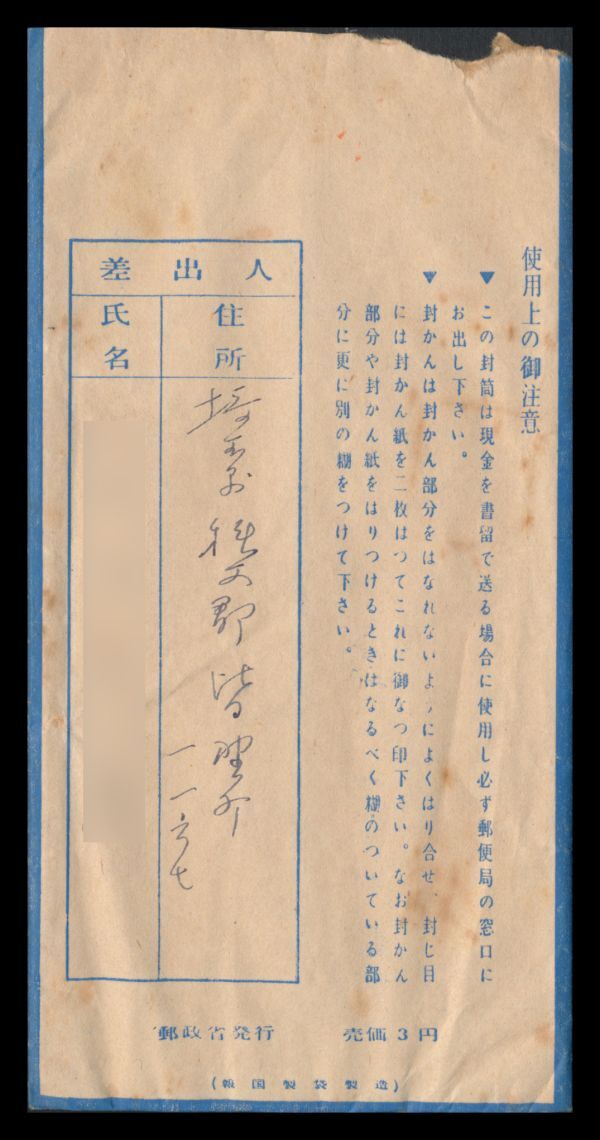 使用上の御注意
▼この封筒は現金を書留で送る場合に使用し必ず郵便局の窓口に
お出し下さい。
▼封かんは封かん部分をはなれないようによくはり合せ、封じ目
には封かん紙を二枚はつてこれに御なつ印下さい。なお封かん
部分や封かん紙をはりつけるときはなるべく糊のついている部
分に更に別の糊をつけて下さい。
差出人
住所
埼玉県秩父郡皆野町
一一六七
氏名
郵政省発行
売価3円
(報国製袋製造)